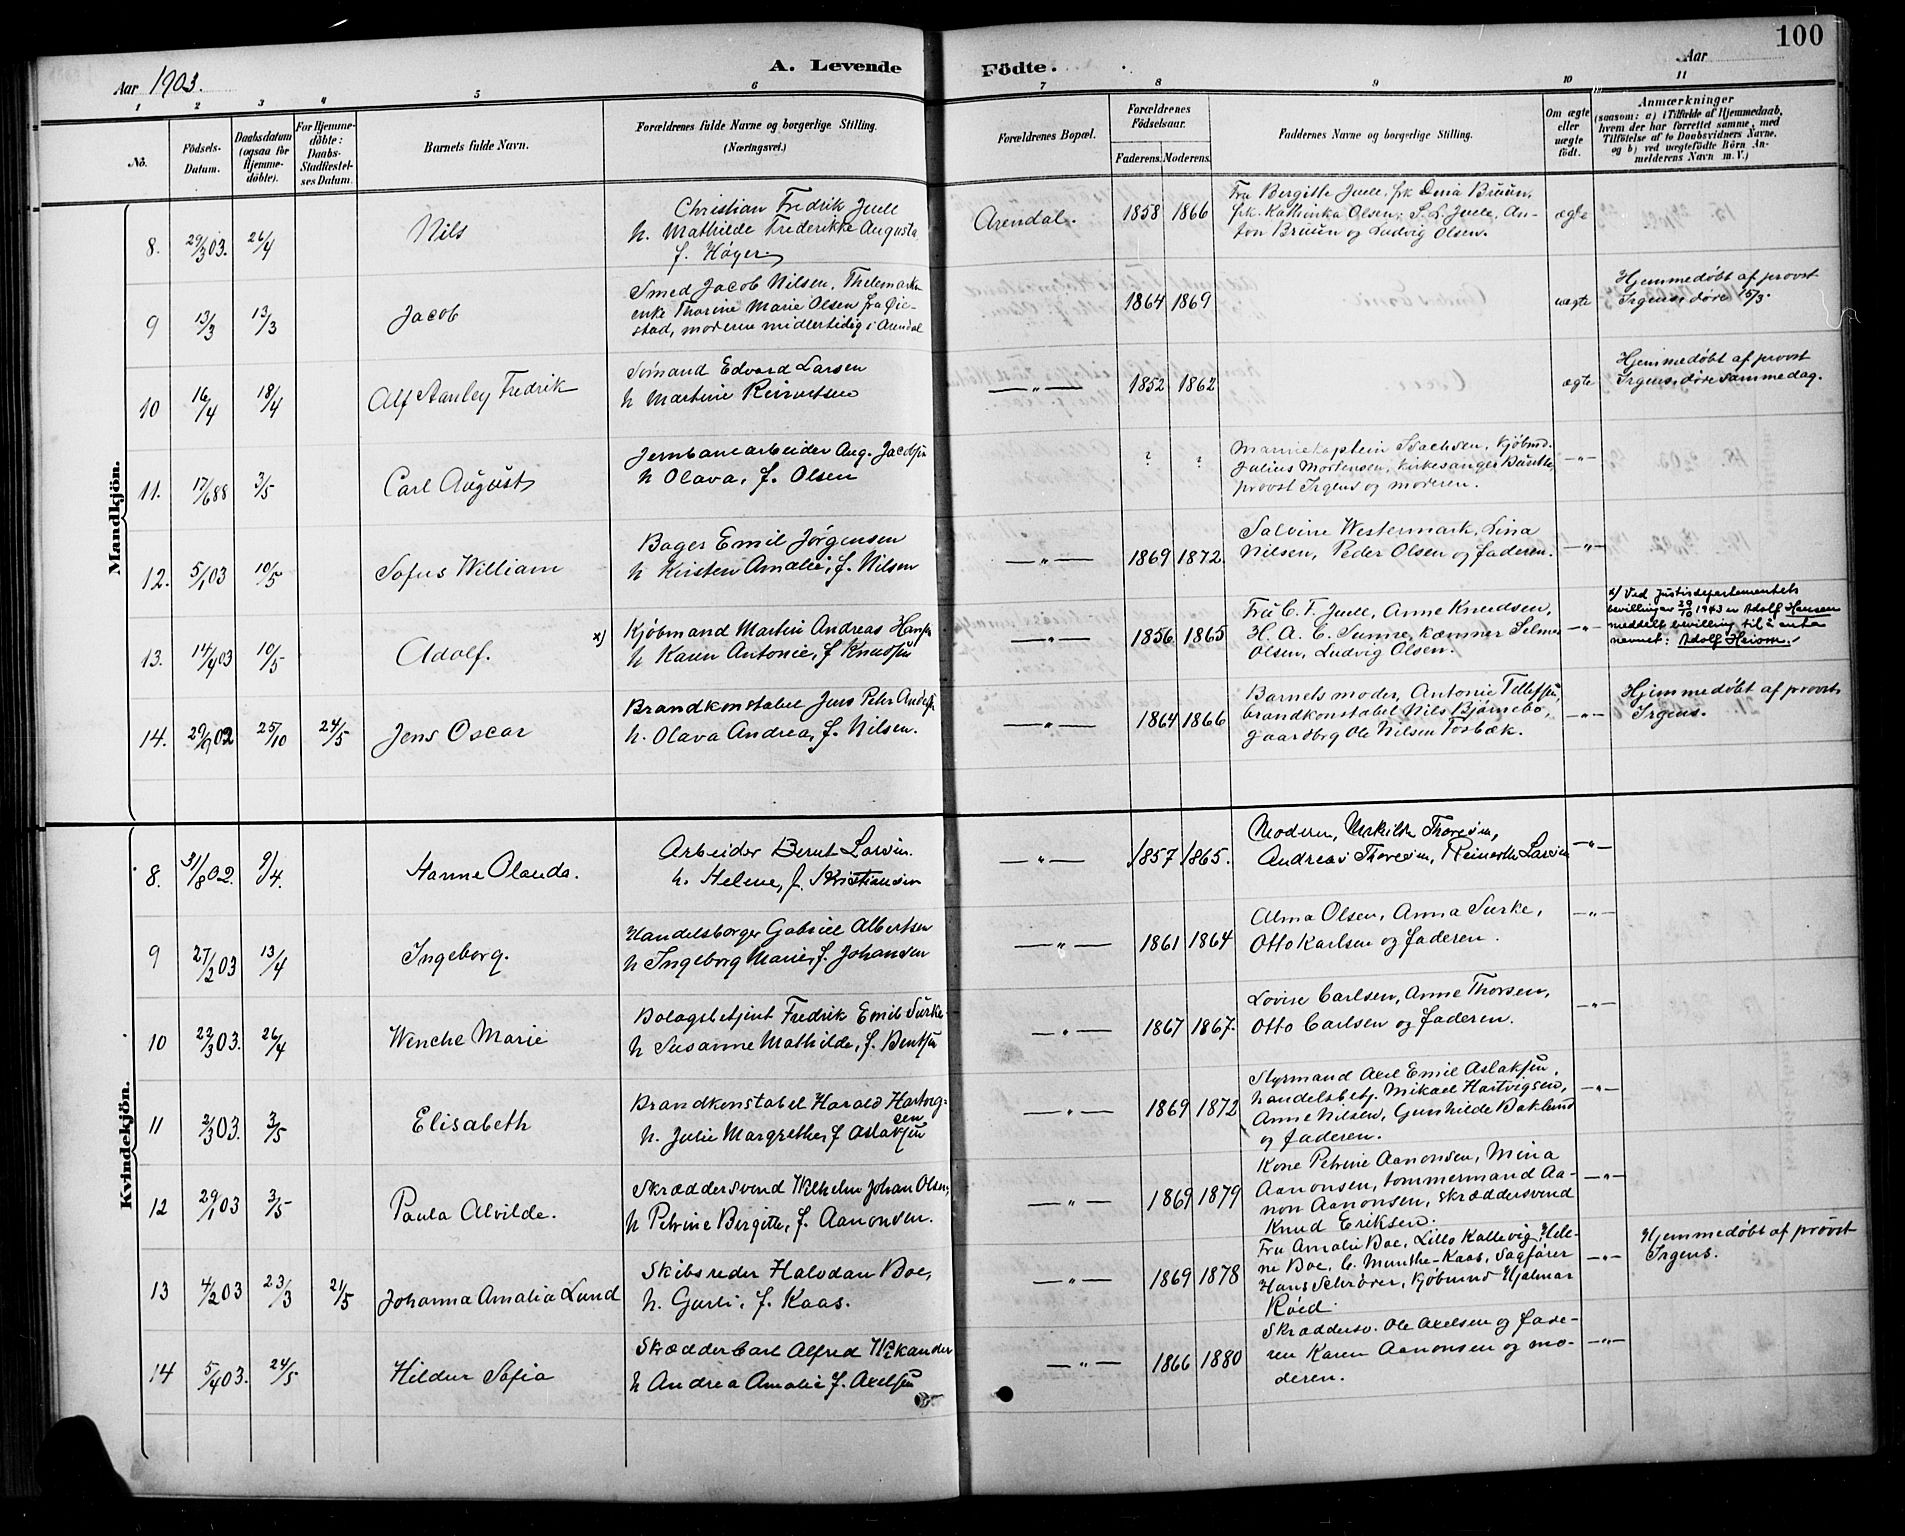 100
Aar 1903.
A. Levende Födte.
Aar
1 2 3 4 5 6 7 8 9 10 11
No.
Födsels-Datum.
Daabsdatum (ogsaa for Hjemme-döbte).
For Hjemme-döbte: Daabs-Stadfæstel-ses Datum.
Barnets fulde Navn.
Forældrenes fulde Navne og borgerlige Stilling.
(Næringsvei.)
Forældrenes Bopæl.
Forældrenes Födselsaar.
Faderens. Moderens.
Faddernes Navne og borgerlige Stilling.
Om ægte eller uægte födt.
Anmærkninger
(saasom: a) i Tilfælde af Hjemmedaab,
hvem der har forrettet samme, med
Tilföielse af to Daabsvidners Navne,
og b) ved uægtefödte Börn An-
melderens Navn m. V.)
Mandkjön.
8. 29/3 03. 26/4 Nils
Christian Fredrik Juell
h. Mathilde Frederikke Augusta
f. Höyer
Arendal. 1858 1866
Fru Bergitte Juell, frk Dina Bruun,
frk. Kathinka Olsen, S. L. Juell, An-
ton Bruun og Ludvig Olsen.
ægte
9 13/3 13/3 Jacob
Smed Jacob Nilsen, Thelemarken
enke Thorine Marie Olsen fra Øie-
stad, moderen midlertidig i Arendal
1864 1869
uægte
Hjemmedøbt af provst
Irgens, døde 15/3.
10 16/4 18/4 Alf Stanley Fredrik
Sømand Edvard Larsen
h Martine Reinertsen
—„— 1852 1862
ægte
Hjemmedøbt af provst
Irgens, døde samme dag.
11. 17/6 88 3/5 Carl August
Jernbanearbeider Aug. Jacobsen
h Olava, f. Olsen
? ?
Marinekaptein Isachsen, kjøbmd.
Julius Mortensen, kirkesanger
provst Irgens og moderen.
—„—
12. 5/1 03 10/5 Sofus William
Bager Emil Jørgensen
h Kirsten Amalie, f. Nilsen
—„— 1869 1872.
Salvine Westermark, Lina
Nilsen, Peder Olsen og faderen.
—„—
13. 14/4 03 10/5 Adolf.
x) Kjøbmand Martin Andreas Hansen
h Karen Antonie, f Knudsen
—„— 1856 1865
Fru C. F. Juell, Anne Knudsen,
H. A. C. Sunne, kæmner Selmer
Olsen, Ludvig Olsen.
—„—
x) Ved Justisdepartementets
bevillinger 29/10 1943 er Adolf Hansen
meddelt bevilling til å anta
navnet: Adolf Heiom.
14. 29/9 02 25/10 24/5 Jens Oscar
Brandkonstabel Jens Peter Andersen
h. Olava Andrea, f. Nilsen.
—„— 1864 1866
Barnets moder, Antonie Tellefsen,
brandkonstabel Nils Bjørnebo,
gaardbrg Ole Nilsen Fosbæk.
—„—
Hjemmedøbt af provst
Irgens.
Kvindekjön.
8. 31/8 02. 9/4. Hanne Olanda.
Arbeider Bernt Larsen.
h. Helene, f. Kristiansen
—„— 1857 1865.
Moderen, Thoresen,
Andreas Thoresen, Reinerth Larsen
—„—
9 27/2 03 13/4 Ingeborg.
Handelsborger Gabriel Albertsen
h Ingeborg Marie, f. Johansen
—„— 1861 1864
Alma Olsen, Anna Surke,
Otto Karlsen og faderen.
—„—
10 22/3 03. 26/4 Wenche Marie
Bolagsbetjent Fredrik Emil Surke
h Susanne Mathilde, f. Bentsen
—„— 1867 1867.
Lovise Carlsen, Anne Thorsen,
Otto Carlsen og faderen.
—„—
11 2/3 03. 3/5 Elisabeth
Brandkonstabel Harald Hartvig-
sen
h. Julie Margrethe, f Aslaksen
—„— 1869 1872
Styrmand Axel Emil Aslaksen,
handelsbetj. Mikael Hartvigsen,
Anne Nilsen, Gunhilde Baklund
og faderen.
—„—
12 29/1 03 3/5 Paula Alvilde.
Skræddersvend Wilhelm Johan Olsen,
h Petrine Bergitte, f. Aanonsen.
—„— 1869 1879
Kone Petrine Aanonsen, Mina
Aanonsen, tømmermand Aa-
non Aanonsen, skræddersvend
Knud Eriksen.
—„—
13 4/2 03 23/3 21/5 Johanna Amalia Lund
Skibsreder Halvdan Boe,
h. Gurli, f. Kaas.
—„— 1869 1878
Fru Amalie Boe, Lillo Kallevig, Hele-
ne Boe, C. Munthe-Kaas, Sagfører
Hans Schrøder, kjøbmnd Hjalmar
Røed.
—„—
Hjemmedøbt af provst
Irgens.
14 5/4 03. 24/5 Hildur Sofia
Skrædder Carl Alfred Wikander
h Andrea Amalie f. Axelsen
—„— 1866 1880
Skræddersv. Ole Axelsen og fade-
ren Karen Aanonsen og mo-
deren.
—„—